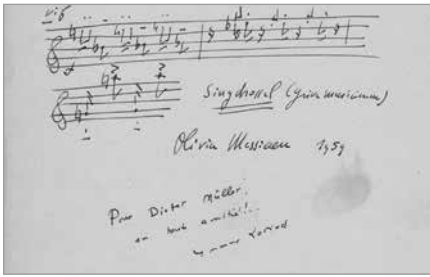 vif
Singdrossel (grive musicienne)
Olivier Messiaen 1959
Pour Dieter Müller,
en toute amitié!..
Yvonne Loriod